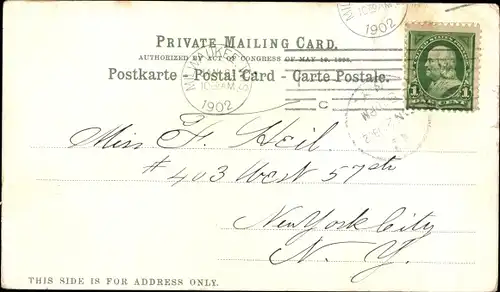 PRIVATE MAILING CARD.
AUTHORIZED BY ACT OF CONGRESS OF MAY 19, 1898.
Postkarte - Postal Card - Carte Postale.
MILWAUKEE
1902
1902
C
1 CENT 1
Miss F. Heil.
# 403 West 57th
New York City
N. Y.
THIS SIDE IS FOR ADDRESS ONLY.